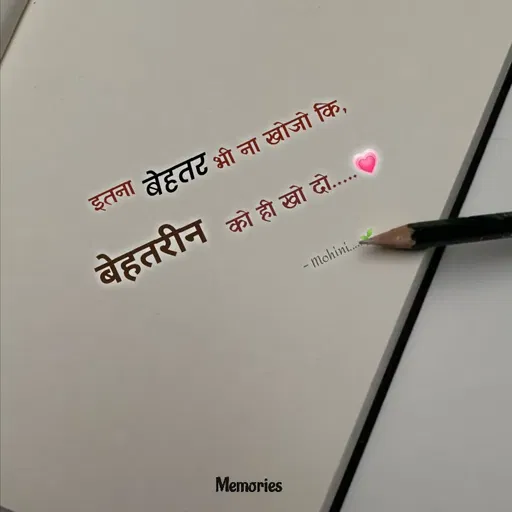 इतना बेहतर भी ना खोजो कि,
बेहतरीन को ही खो दो.....
- Mohini...
Memories